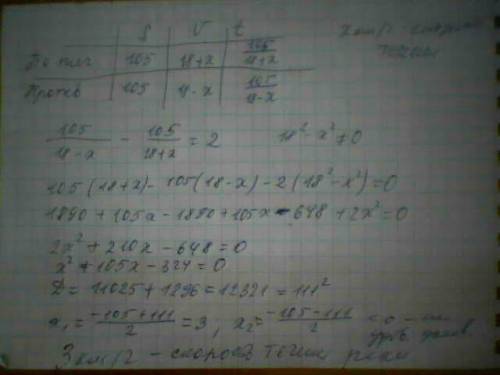 S V t
По теч 105 18+x 105/18+x
Против 105 18-x 105/18-x
x км/ч - скорость
течения
105/18-x - 105/18+x = 2 18²-x²≠0
105(18+x)-105(18-x)-2(18²-x²)=0
1890+105x-1890+105x-648+2x²=0
2x²+210x-648=0
x²+105x-324=0
D=11025+1296=12321=111²
x₁=-105+111/2=3; x₂=-105-111/2 <0 - не
удов. услов.
3 км/ч - скорость течен реки